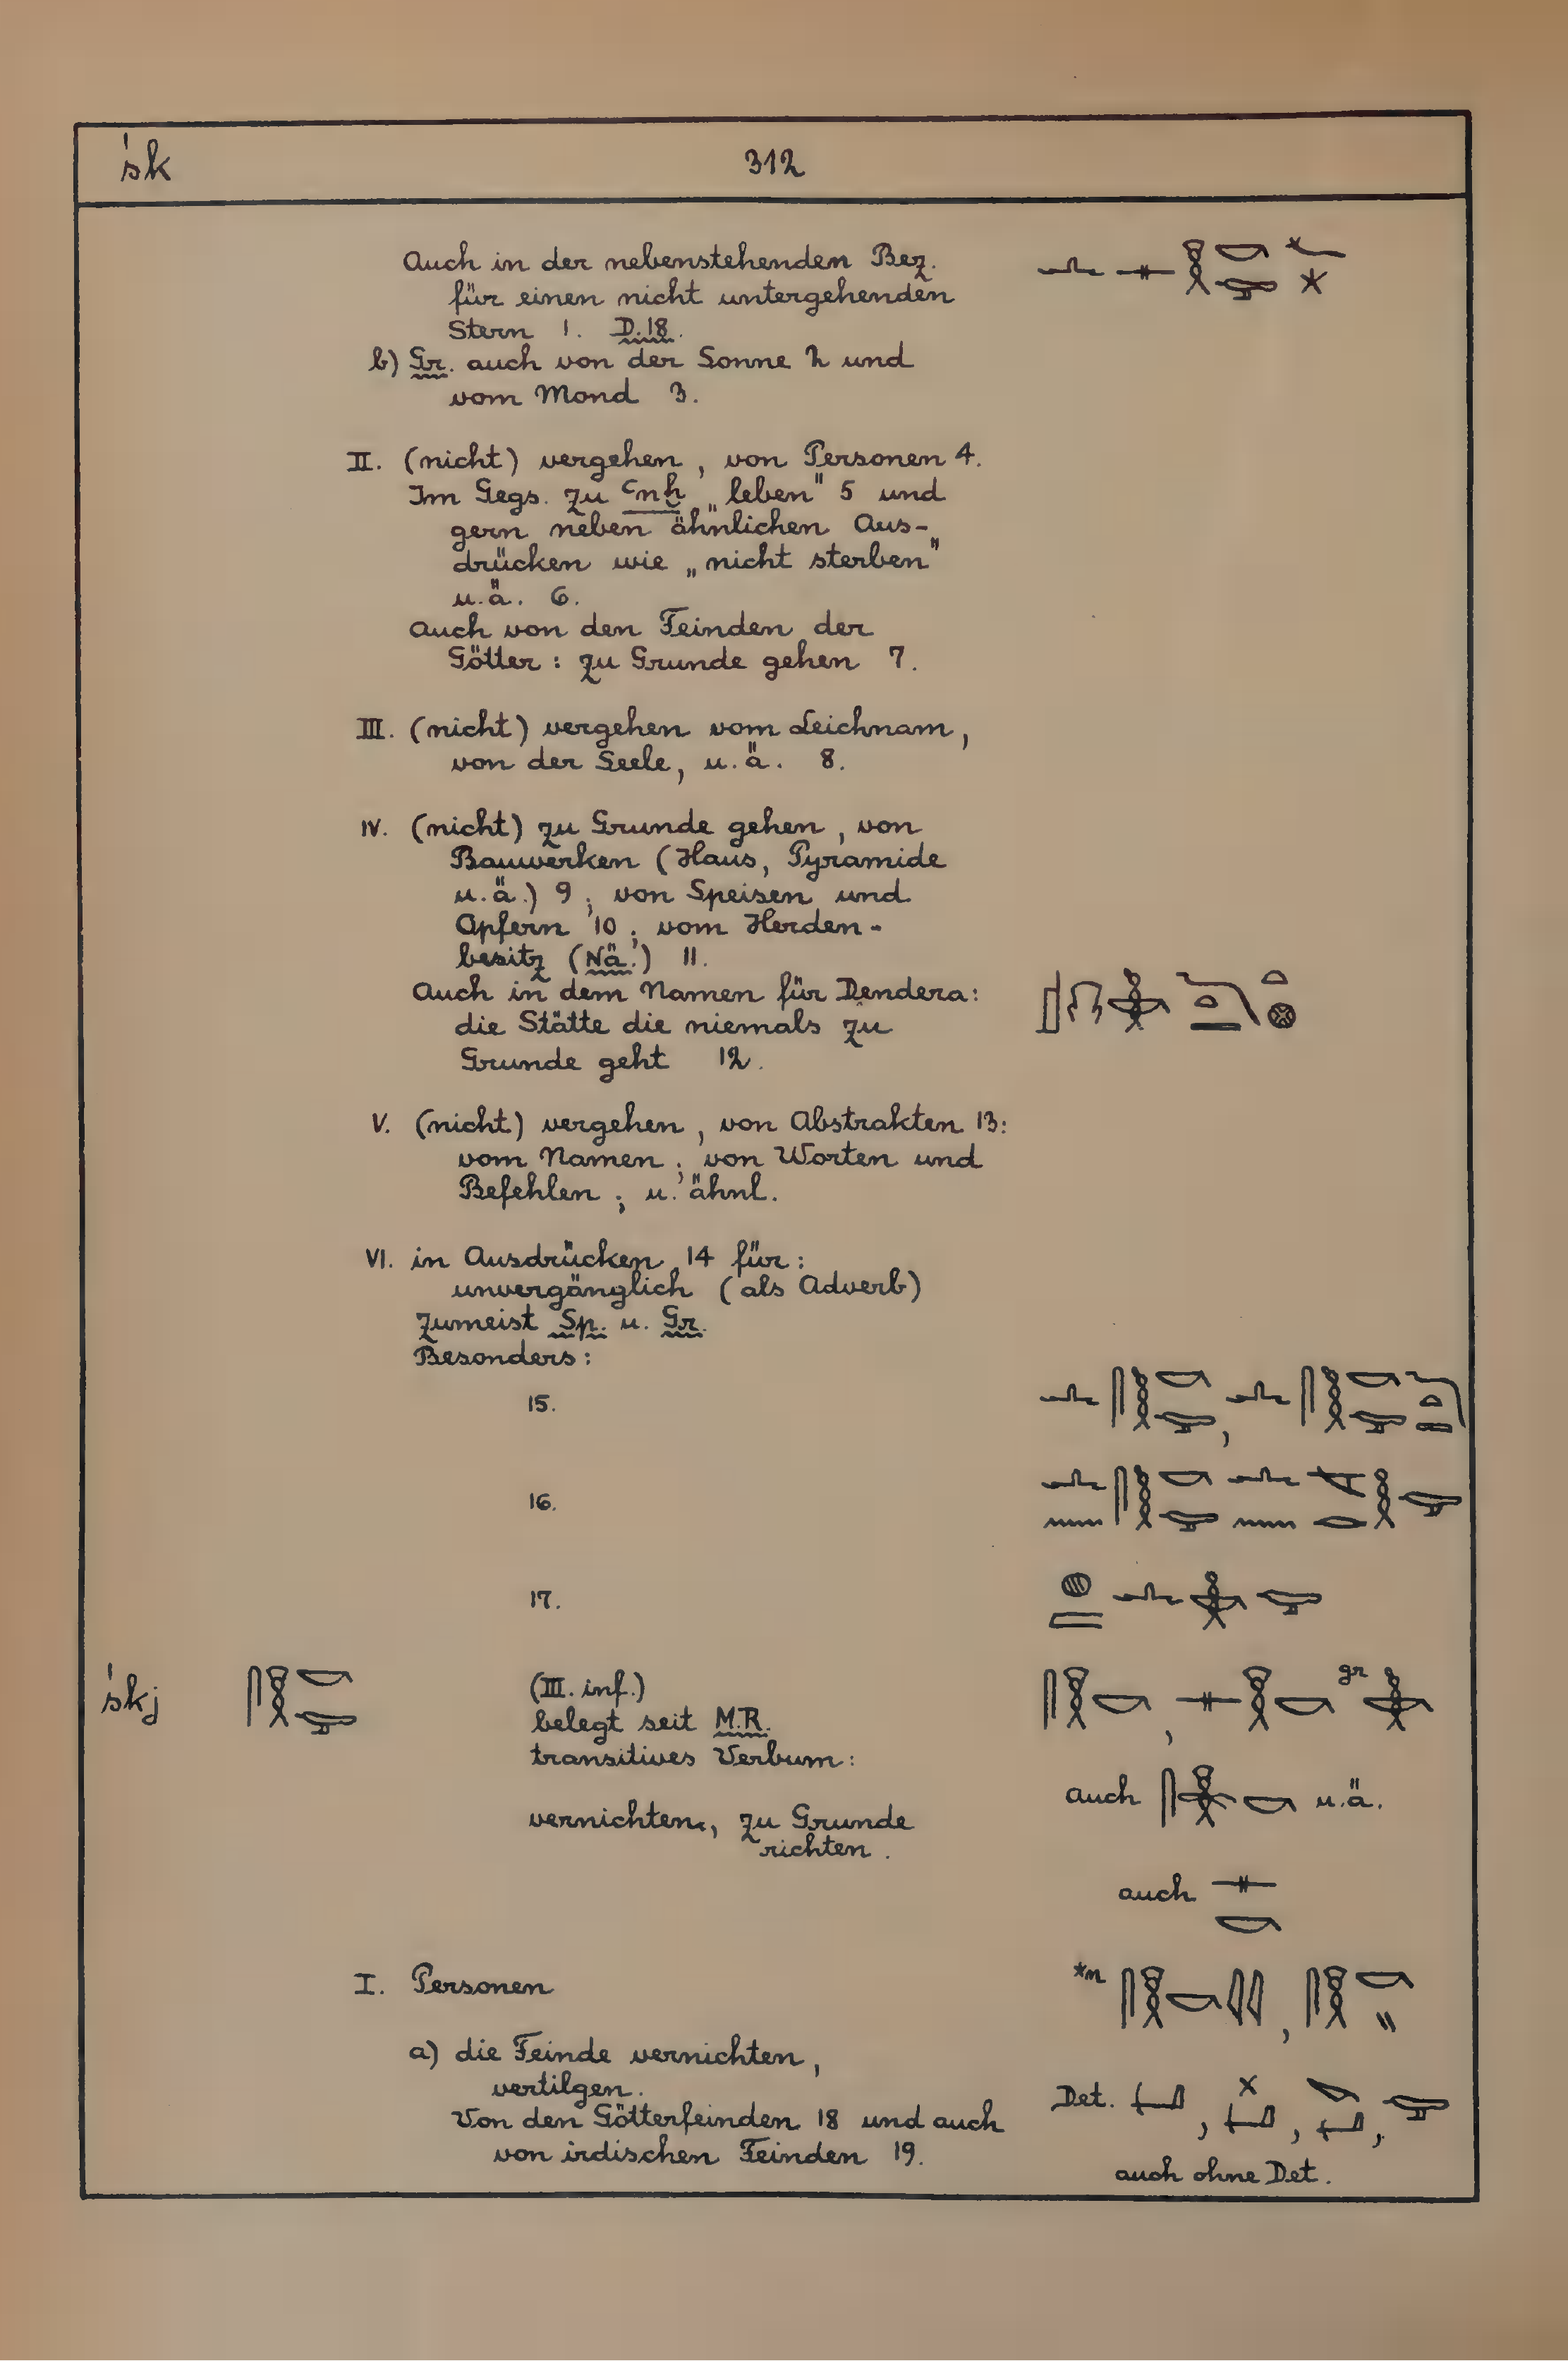 śk 312
Auch in der nebenstehenden Bez.
für einen nicht untergehenden
Stern 1. D.18.
b) Gr. auch von der Sonne 2 und
vom Mond 3.
II. (nicht) vergehen, von Personen 4.
Im Gegs. zu ꜥnḫ „leben" 5 und
gern neben ähnlichen Aus-
drücken wie „nicht sterben"
u.ä. 6.
Auch von den Feinden der
Götter: zu Grunde gehen 7.
III. (nicht) vergehen vom Leichnam,
von der Seele, u.ä. 8.
IV. (nicht) zu Grunde gehen, von
Bauwerken (Haus, Pyramide
u.ä.) 9; von Speisen und
Opfern 10; vom Herden-
besitz (Nä.) 11.
Auch in dem Namen für Dendera:
die Stätte die niemals zu
Grunde geht 12.
V. (nicht) vergehen, von Abstrakten 13:
vom Namen; von Worten und
Befehlen; u. ähnl.
VI. in Ausdrücken 14 für:
unvergänglich (als Adverb)
zumeist Sp. u. Gr.
Besonders:
15.
16.
17.
śkj
(III. inf.)
belegt seit M.R.
transitives Verbum:
vernichten, zu Grunde
richten.
gr
auch u.ä.
auch
I. Personen
*n
a) die Feinde vernichten,
vertilgen.
Von den Götterfeinden 18 und auch
von irdischen Feinden 19.
Det.
auch ohne Det.